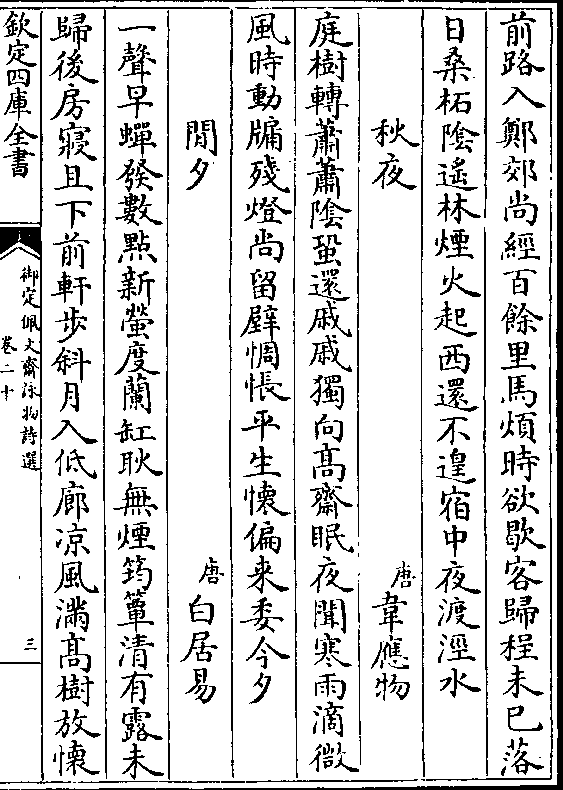 前路入鄭郊尚經百餘里馬煩時欲歇客歸程未已落
日桑柘陰遥林煙火起西還不遑宿中夜渡涇水
秋夜
唐韋應物
庭樹轉蕭蕭陰蛩還戚戚獨向髙齋眠夜聞寒雨滴微
風時動牖殘燈尚留壁惆悵平生懷偏来委今夕
閒夕
唐白居易
一聲早蟬發數點新螢度蘭缸耿無煙筠簟清有露未
歸後房寢且下前軒步斜月入低廊凉風滿髙樹放懷
欽定四庫全書
御定佩文齋詠物詩選
卷二十
三